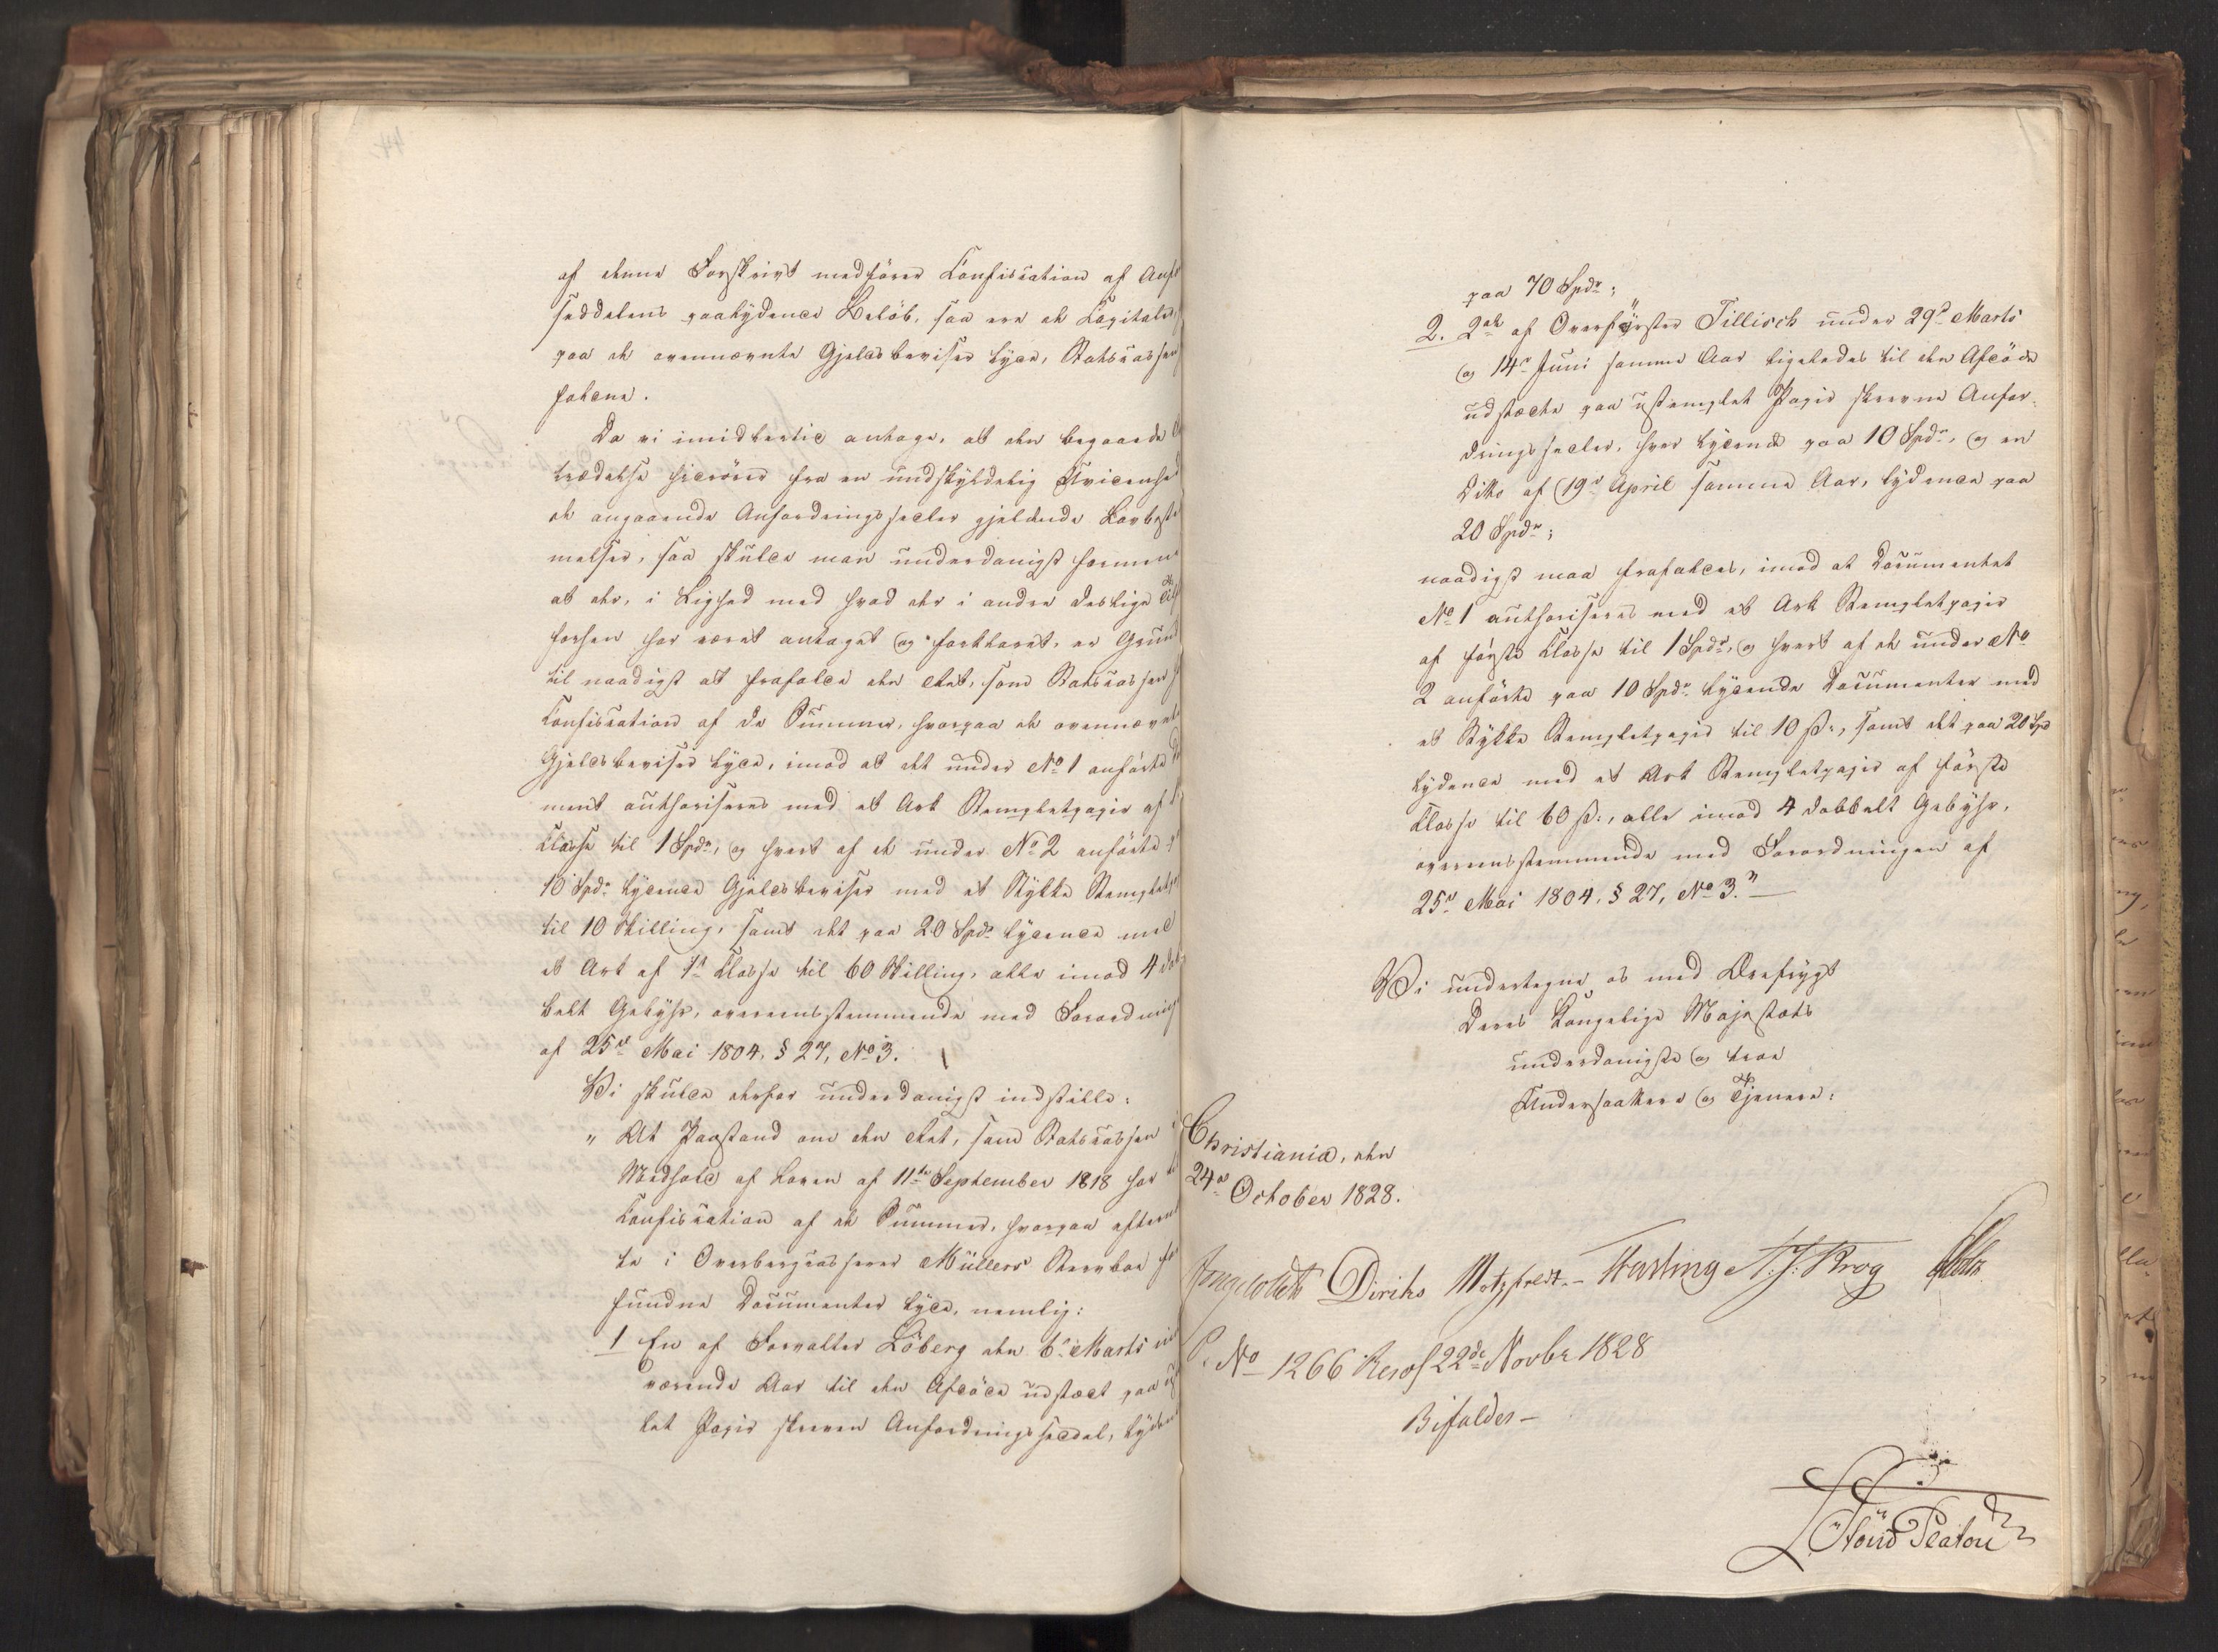 af denne Forskrivt medfører Confiscation af Anfor
seddelens paalydende Beløb, saa ere de Capitaler,
paa de ovennævnte Gjeldsbeviser lyde, Statscassen
faldne.
Da vi imidlertid antage, at den begaaede
trædelse hidrører fra en undskyldelig Uvidenhed
de angaaende Anfordringssedler gjeldende Lovbeste
melser, saa skulde man underdanigst formene
at der, i Lighed med hvad der i andre deslige Til
fælde har været antaget og forklaret, er Grund
til naadigst at frafalde den Ret, som Statscassen
Confiscation af de Summer, hvorpaa de ovennævnte
Gjeldsbeviser lyde, imod at det under No 1 anførte Do
ment authoriseres med et Ark Stempletpapir af
Classe til 1 Spdr, og hvert af de under No 2 anførte
10 Spdr lydende Gjeldsbeviser med et Stykke Stempletpa
til 10 Skilling, samt det paa 20 Spdr lydende med
et Ark af 1ste Classe til 60 Skilling, alle imod 4 dob
belt Gebyhr, overeensstemmende med Forordning
af 25de Mai 1804, § 27, No 3.
Vi skulde derfor underdanigst indstille:
" At Paastand om den Ret, som Statscassen i
Medhold af Loven af 11te September 1818 har til
Confiscation af de Summer, hvorpaa efternævn
te i Overbergcasserer Müllers Sterboe fore
fundne Documenter lyde, nemlig:
1 En af Forvalter Löberg den 6te Marts
værende Aar til den Afdøde udstædt paa
let Papir skreven Anfordringsseddel, lyden
paa 70 Spdr;
2. 2de af Overførster Tillisch under 29de Marts
og 14de Juni samme Aar ligeledes til den Afdøde
udstædte paa ustemplet Papir skrevne Anfor-
dringssedler, hver lydende paa 10 Spdr, og en
Ditto af 19de April samme Aar, lydende paa
20 Spdr;
naadigst maa frafaldes, imod at Documentet
No 1 authoriseres med et Ark Stempletpapir
af første Classe til 1 Spdr, og hvert af de under No
2 anførte paa 10 Spdr lydende Documenter med
et Stykke Stempletpapir til 10 ß:, samt det paa 20 Spd
lydende med et Ark Stempletpapir af første
Classe til 60 ß:, alle imod 4 dobbelt Gebyhr,
overeensstemmende med Forordningen af
25de Mai 1804, § 27, No 3."
Vi undertegne os med Ærefrygt
Deres Kongelige Majestæts
underdanigste og troe
Undersaattere og Tjenere:
Christiania, den
24de October 1828.
Diriks Motzfeldt.- Fasting N. J. Krog
P. No 1266 Resol 22de Novbr 1828
Bifaldes -
Löwenskiold Platou